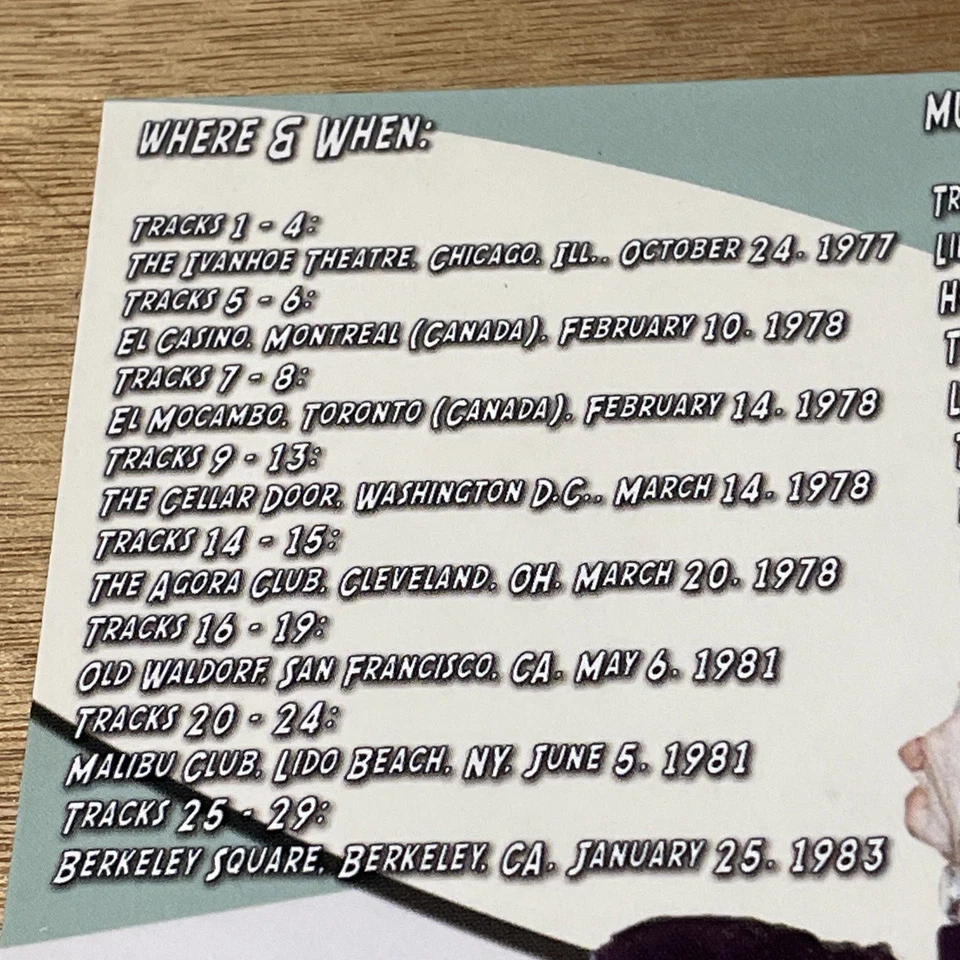 WHERE & WHEN:
TRACKS 1 - 4:
THE IVANHOE THEATRE, CHICAGO, ILL., OCTOBER 24, 1977
TRACKS 5 - 6:
EL CASINO, MONTREAL (CANADA), FEBRUARY 10, 1978
TRACKS 7 - 8:
EL MOCAMBO, TORONTO (CANADA), FEBRUARY 14, 1978
TRACKS 9 - 13:
THE CELLAR DOOR, WASHINGTON D.C., MARCH 14, 1978
TRACKS 14 - 15:
THE AGORA CLUB, CLEVELAND, OH, MARCH 20, 1978
TRACKS 16 - 19:
OLD WALDORF, SAN FRANCISCO, CA, MAY 6, 1981
TRACKS 20 - 24:
MALIBU CLUB, LIDO BEACH, NY, JUNE 5, 1981
TRACKS 25 - 29:
BERKELEY SQUARE, BERKELEY, CA, JANUARY 25, 1983